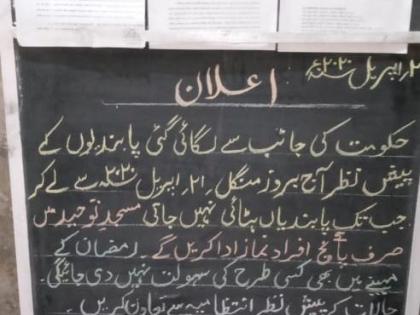 اپریل ۲۰۲۰ء
اعلان
حکومت کی جانب سے لگائی گئی پابندیوں کے
پیش نظر آج بروز منگل ۲۱؍ اپریل ۲۰۲۰ء سے لے کر
جب تک پابندیاں ہٹائی نہیں جاتی مسجد توحید میں
صرف پانچ افراد نماز ادا کریں گے ۔ رمضان کے
مہینے میں بھی کسی طرح کی سہولت نہیں دی جائیگی ۔
حالات کے پیش نظر انتظامیہ سے تعاون کریں ۔